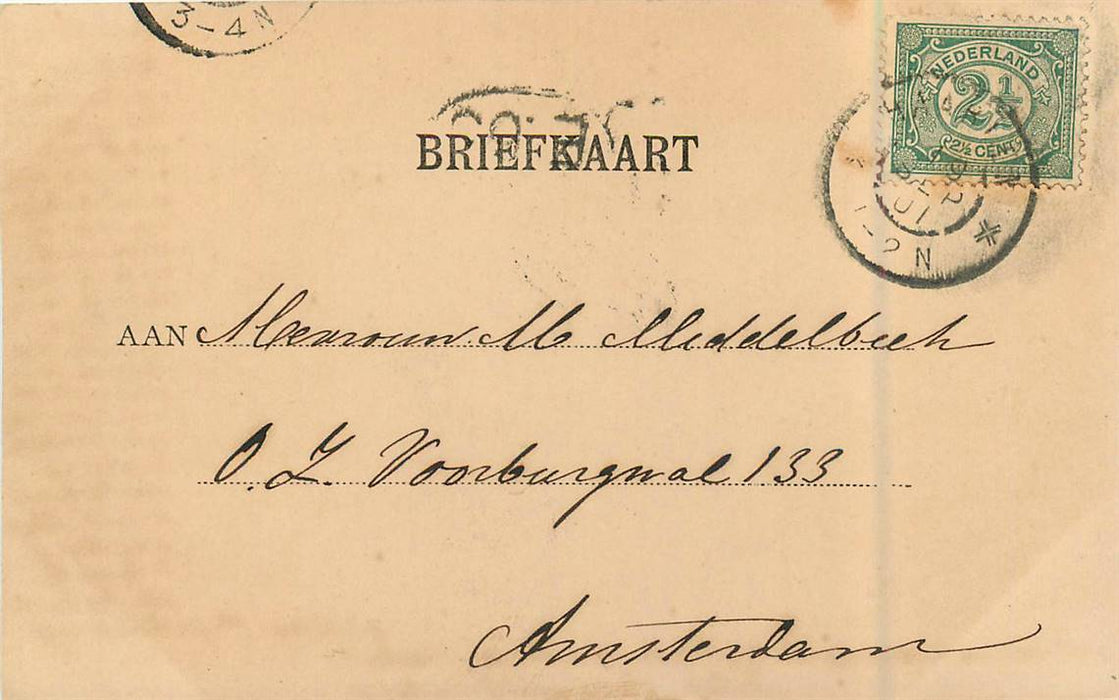 3-4N
NEDERLAND
2½
2½ CENT
BRIEFKAART
SEP
01
1-2N
AAN Mevrouw M Middelbeek
O. Z. Voorburgwal 133
Amsterdam